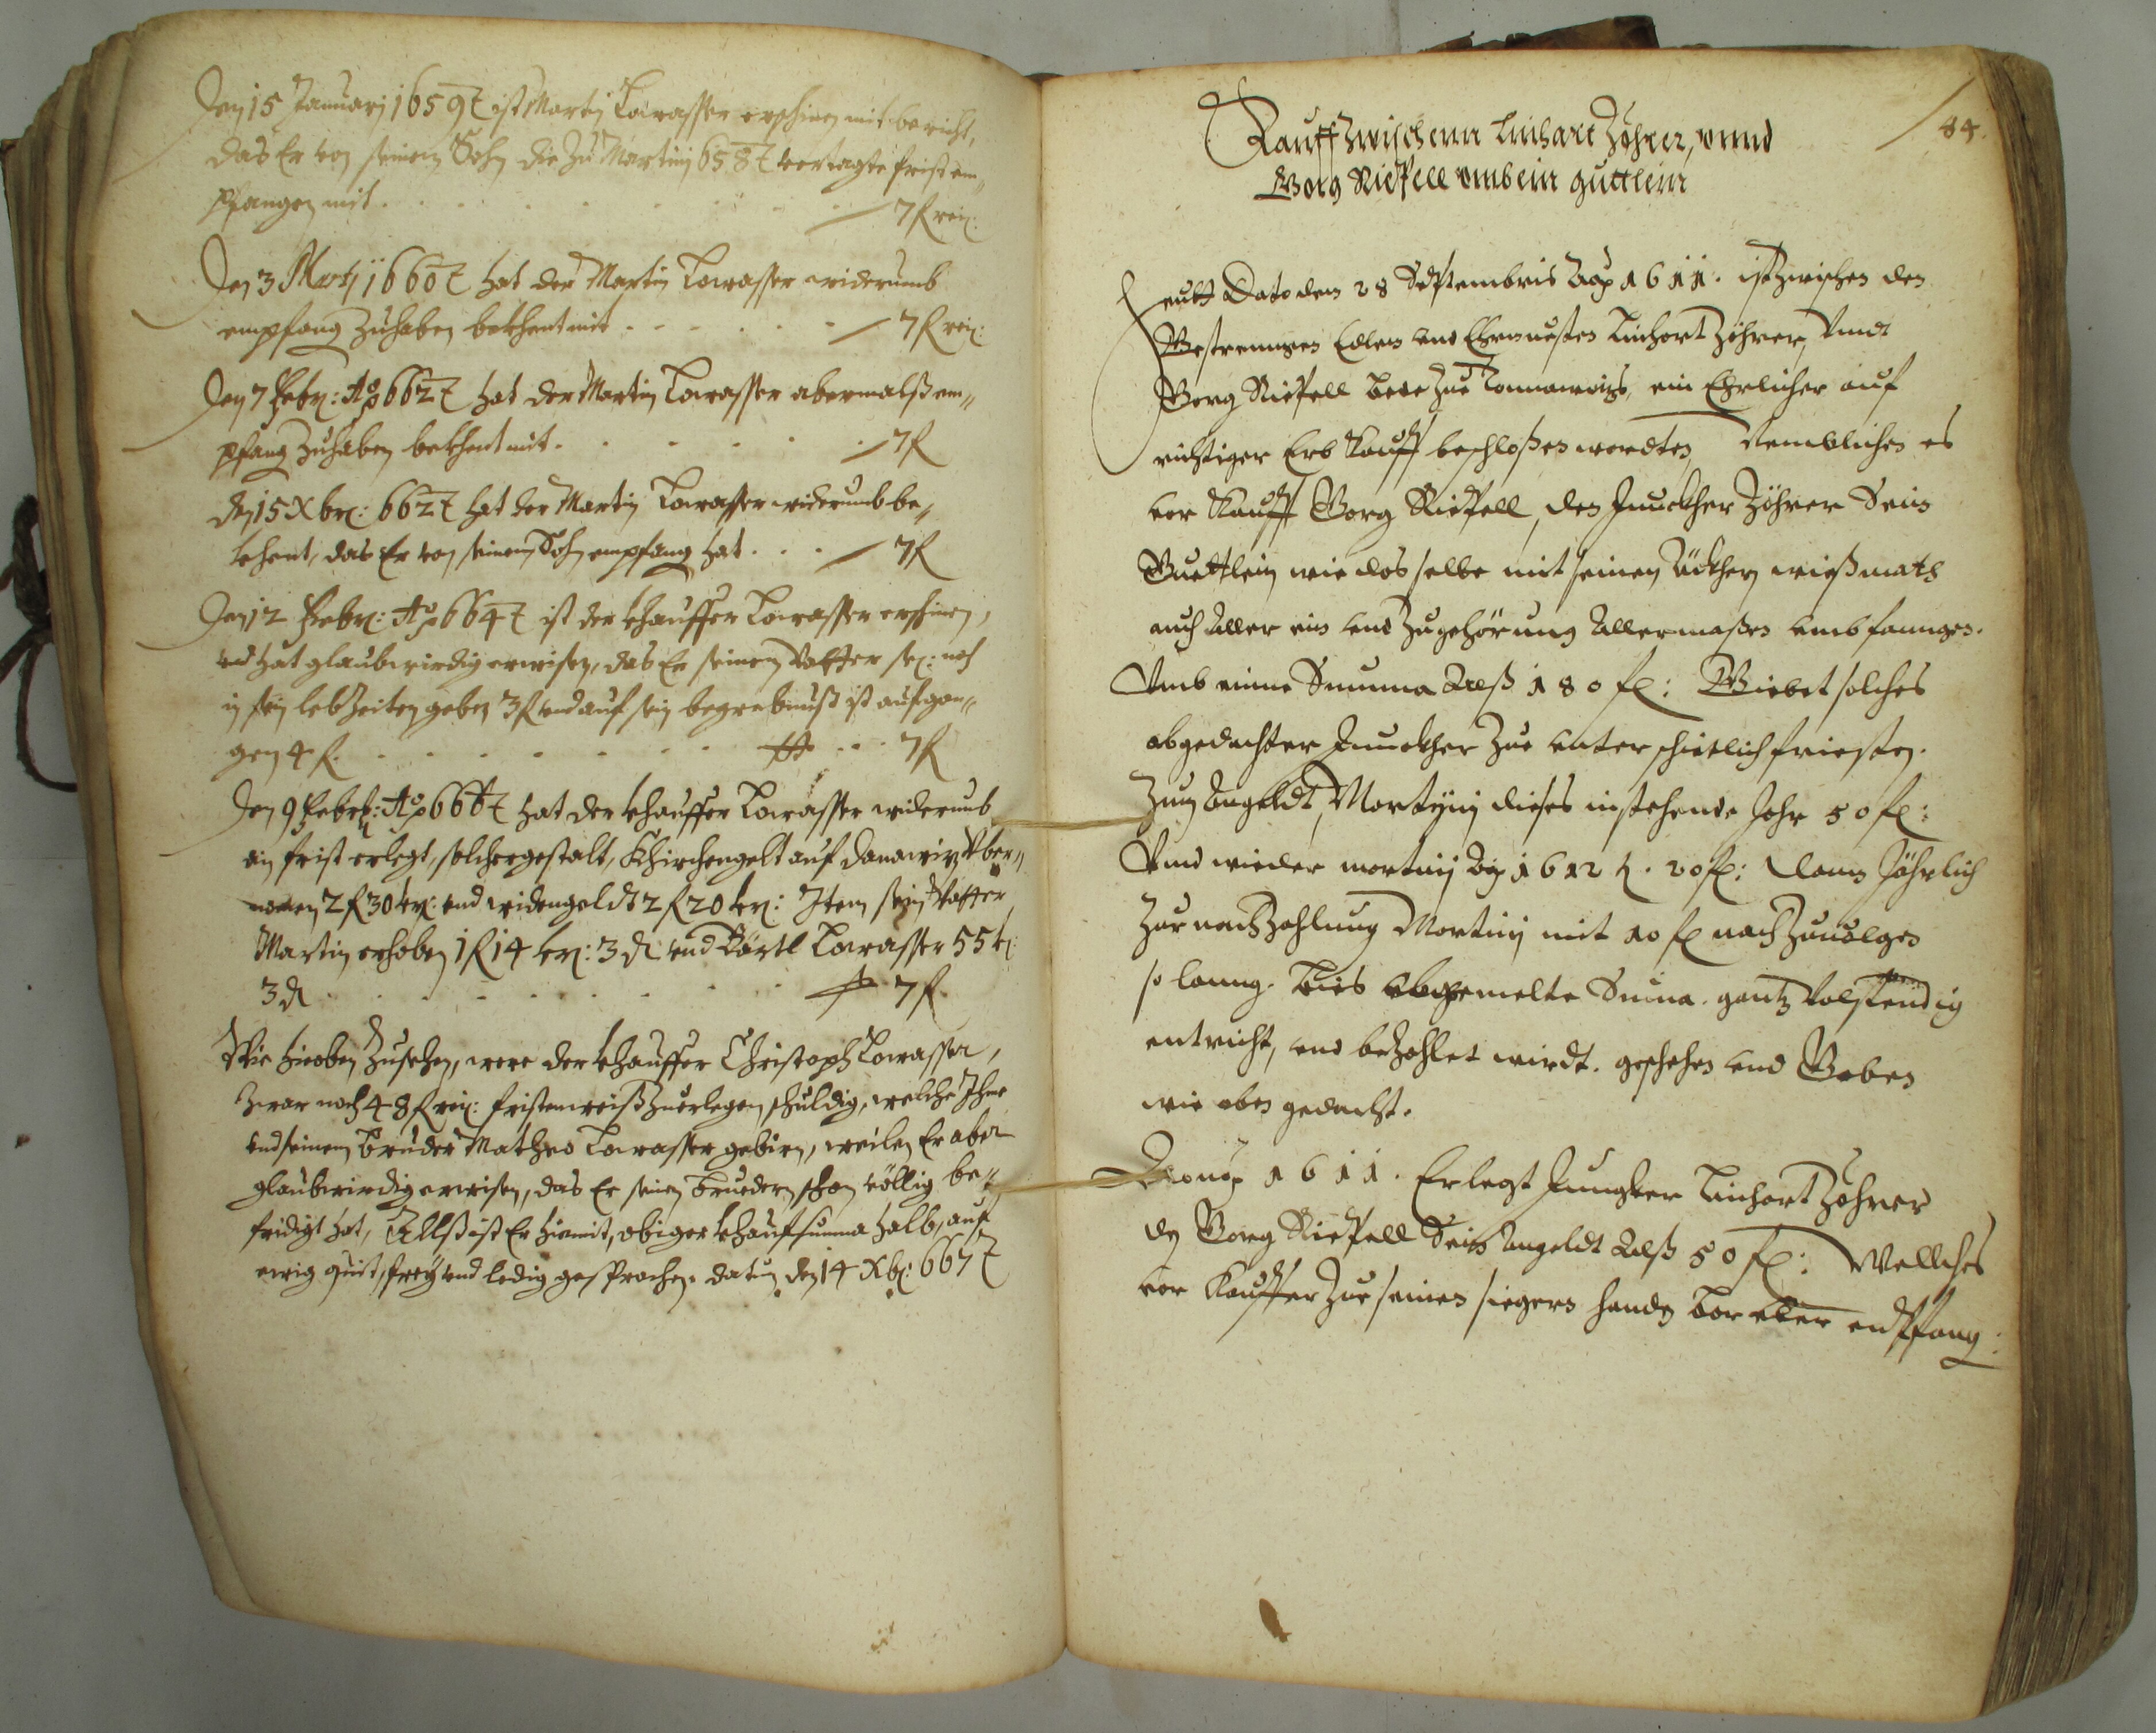 Den 15 Januarj 1659 ist Martin Lorasser erschinen mit bericht,
das Er von seinem Sohn die zu Martinj 658 vertagte frist em„
pfangen mit . . . . . . 7 f rein:
Den 3 Martj 1660 hat der Martin Lorasser widerumb
empfang zuhaben bekhent mit . . . . . 7 f rein:
Den 7 Febr: Ao 662 hat der Martin Lorasser abermalß em„
pfang zuhaben bekhent mit . . . . . 7 f
den 15 Xbr: 662 hat der Martin Lorasser widerumb be„
khent, das Er von seinem Sohn empfang hat . . . 7 f
Den 12 Febr: Ao 664 ist der khauffer Lorasser erschinen,
und hat glaubwirdig erwisen, das Er seinem Vatter sel: noch
in sein lebzeiten geben 3 f und auf sein begrebnuß ist aufgan„
gen 4 f. . . . . . . . 7 f
Den 9 Febr: Ao 666 hat der khauffer Lorasser widerumb
ain frist erlegt, solchergestalt, Khirchengelt auf Danawiz Vber„
2 f 30 kr: und widengeldt 2 f 20 kr: Item sein Vatter
Martin erhoben 1 f 14 kr: 3 d und Bärtl Lorasser 55 k:
3 d . . . . . . 7 f.
Wie hieoben zusehen, were der khauffer Christoph Lorasser,
zwar noch 48 f rein: fristenweiß zuerlegen schuldig, welche Ihme
und seinem bruder Matheo Lorasser gebirn, weilen Er aber
glaubwirdig erwisen, das Er seinen bruedern schon völlig be„
fridigt hat, Alß ist Er hiemit, obiger khaufsumma halb, auf
ewig quit, frey und ledig gesprochen. datum den 14 Xbr: 667
84.
Kauff zwischenn Linhart Zöhrer, vnnd
Georg Riepell vmb ein guttlein
Heutt Dato den 28 Septembris Ao 1611. ist zwischen den
Gestrenngen Edlen vnd Ehrnuesten Linhart Zöhrer, Vnndt
Georg Riepell beede zue , ein Ehrlicher auf
richtiger Erb Kauff beschloßen wordten, Nemblichen es
ver Kaufft Georg Riepell, den Junckher Zöhrer Sein
Guettlein wie das selbe mit seinen äckhern wießmath
auch Aller ein vnd Zugehörung Allermaßen vmbfanngen.
Vmb einne Summa Alß 180 fl: Giebet solches
obgedachter Junckher zue vnterschietlich friesten.
Zum Angeldt, Martynj dieses instehende Jahr 50 fl:
Vnd wieder martinj Ao 1612 . 20 fl: dann Jährlich
Zur nachzahlung Martinj mit 10 fl nach Zuuolgen
so lanng. bies obgemelte Suma. gantz Volstendig
entricht, vnd bezahlet wirdt. geschehen vnd Geben
wie oben gedacht.
Anno 1611. Erlegt Jungker Linhart Zöhrer
den Georg Riepell Sein Angeldt Alß 50 fl: Wellches
ver Kauffer zue seinen handen bar endtpfang: